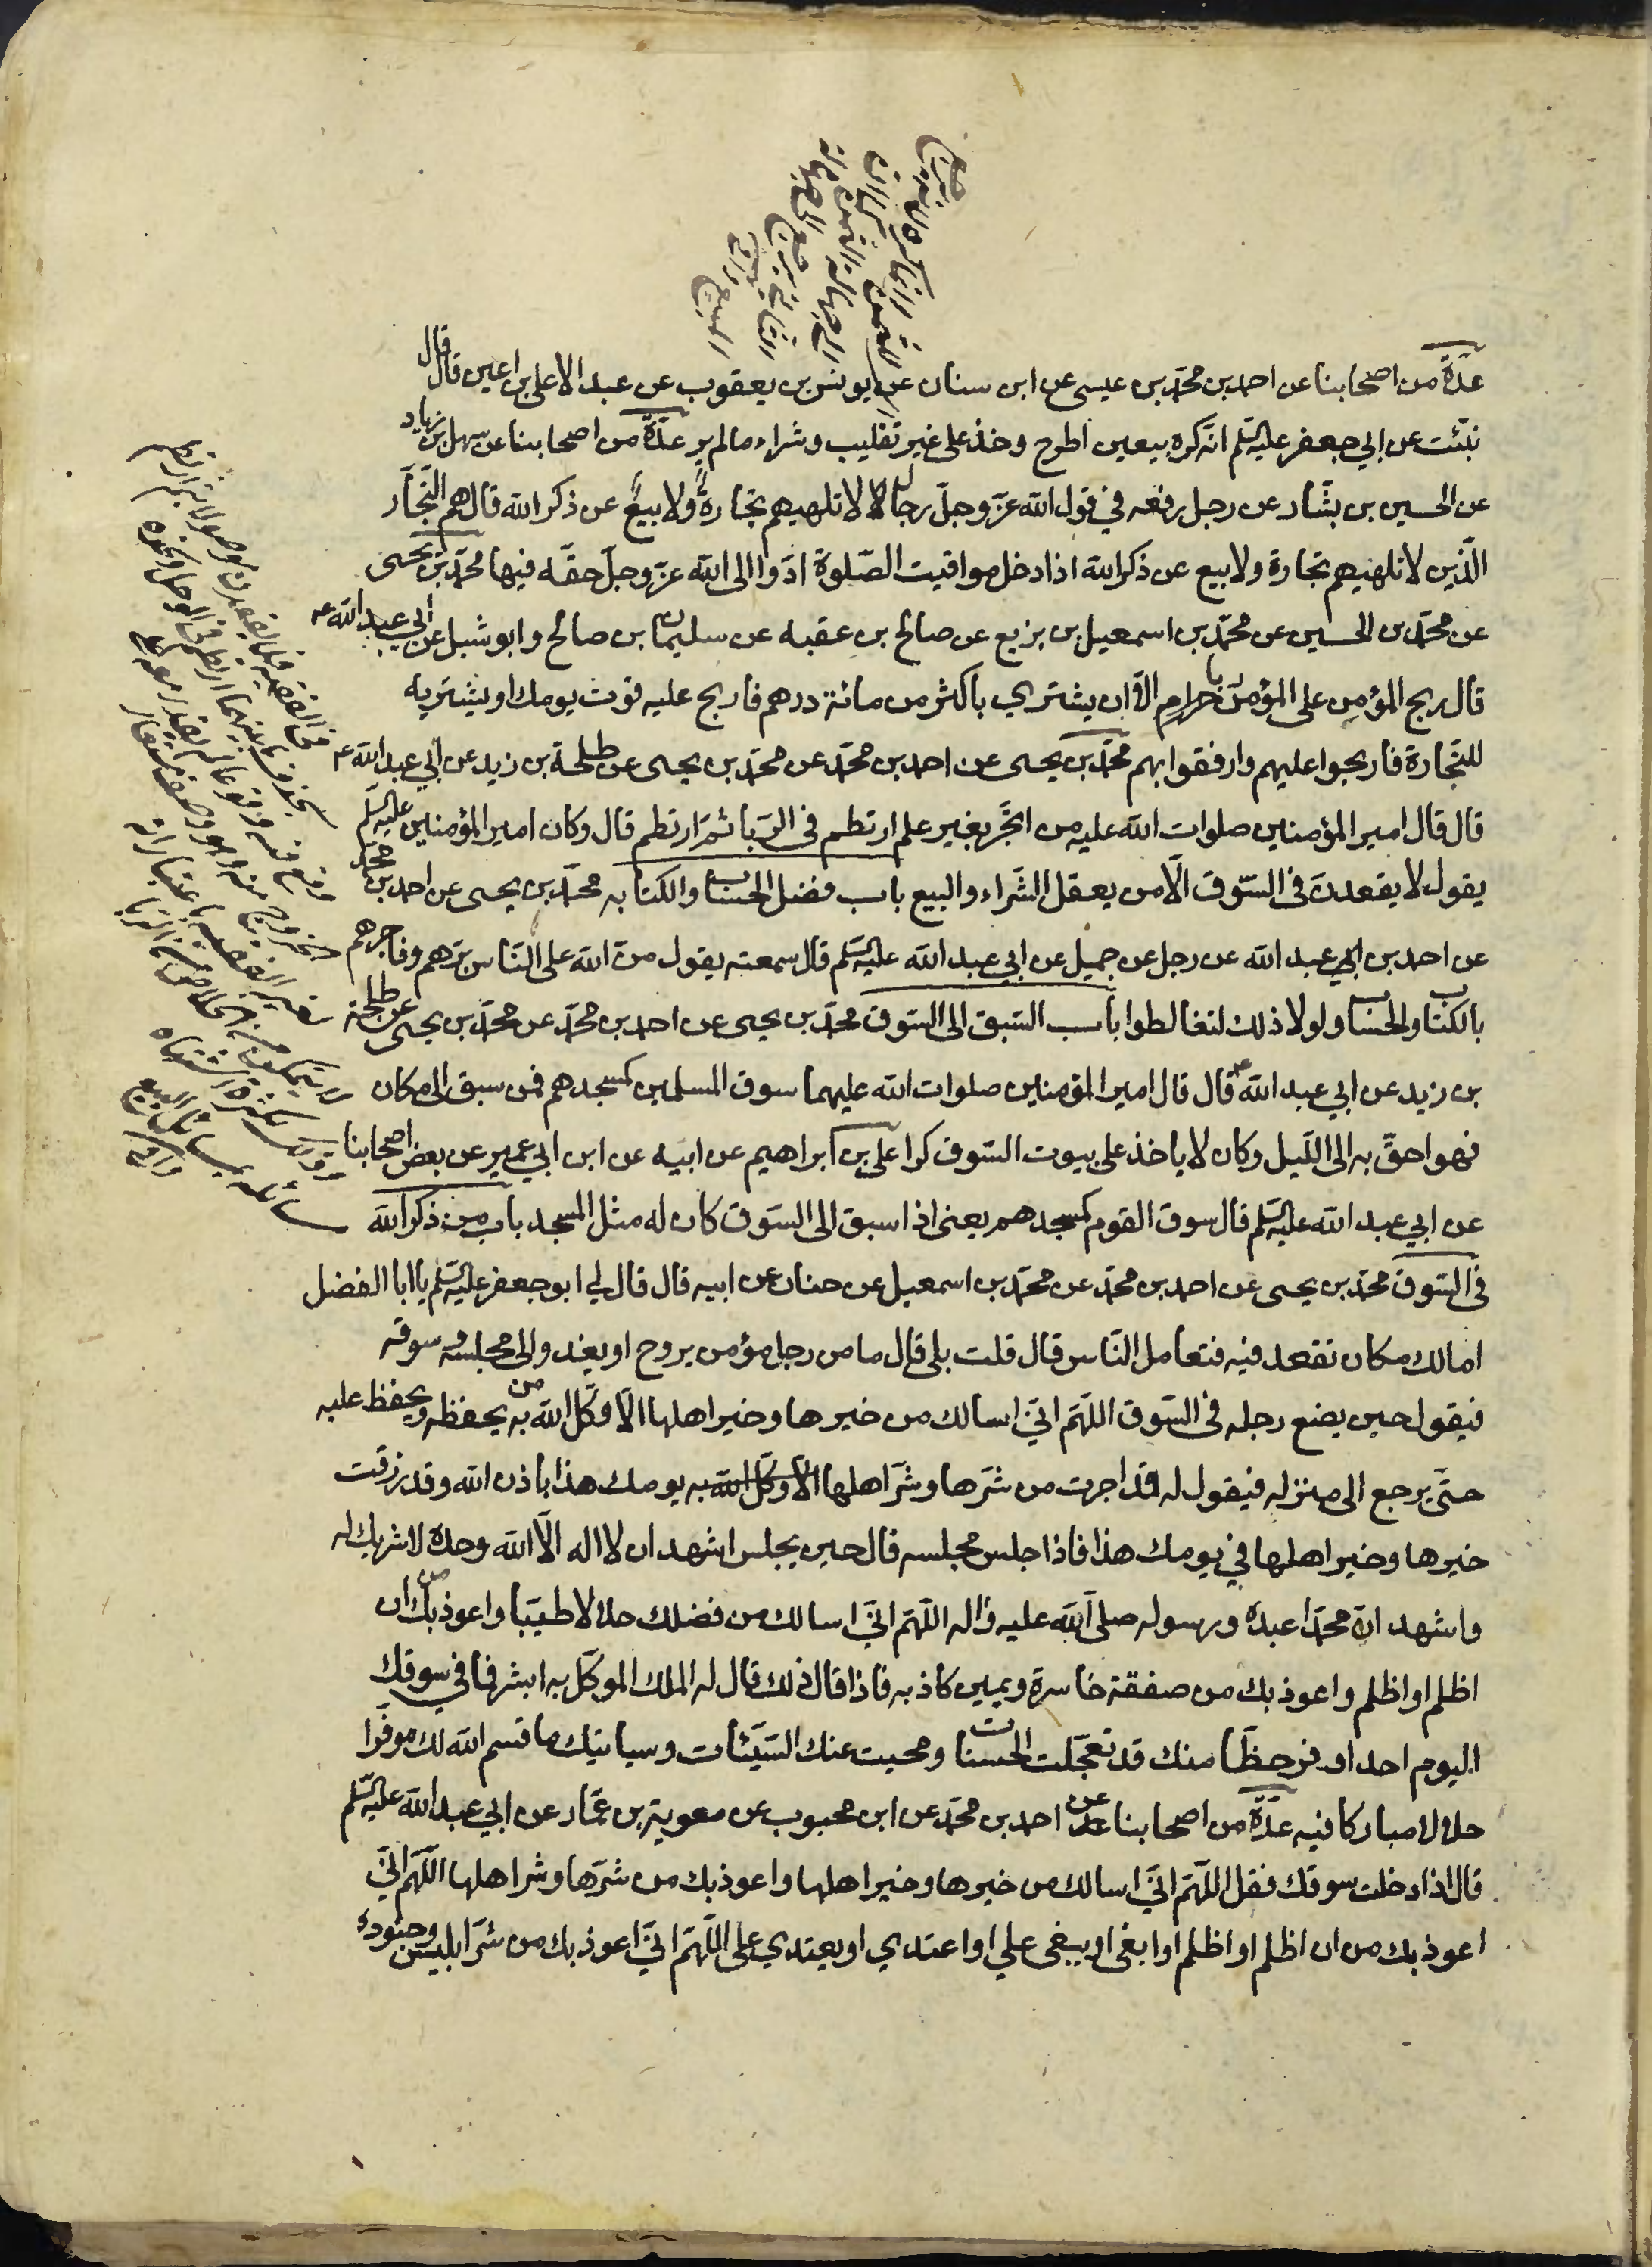 عدّة من اصحابنا عن احمد بن محمّد بن عيسى عن ابن سنان عن يونس بن يعقوب عن عبد الاعلى بن اعين قال قال
نبّئت عن ابي جعفر عليه السّلم انّه كره بيعين اطرح وخذ على غير تقليب وشراء ما لم ير عدّة من اصحابنا عن سهل بن زياد
عن الحسين بن بشّار عن رجل رفعه في قول الله عزّ وجلّ رجال لا تلهيهم تجارةٌ ولا بيعٌ عن ذكر الله قال هم التّجّار
الّذين لا تلهيهم تجارة ولا بيع عن ذكر الله اذا دخل مواقيت الصّلوة ادّوا الى الله عزّ وجلّ حقّه فيها محمّد بن يحيى
عن محمّد بن الحسين عن محمّد بن اسمعيل بن بزيع عن صالح بن عقبه عن سليمان بن صالح وابو شبل عن ابي عبد الله ع
قال ربح المؤمن على المؤمن ربا حرام الّا ان يشتري باكثر من مائة درهم فاربح عليه قوت يومك او يشتريه
للتّجارة فاربحوا عليهم وارفقوا بهم محمّد بن يحيى عن احمد بن محمّد عن محمّد بن يحيى عن طلحة بن زيد عن ابي عبد الله ع
قال قال امير المؤمنين صلوات الله عليه من اتّجر بغير علم ارتطم في الرّبا ثمّ ارتطم قال وكان امير المؤمنين عليه السّلم
يقول لا يقعدنّ في السّوق الّا من يعقل الشّراء والبيع باب فضل الحساب والكتابه محمّد بن يحيى عن احمد بن محمّد
عن احمد بن ابي عبد الله عن رجل عن جميل عن ابي عبد الله عليه السّلم قال سمعته يقول منّ الله على النّاس برّهم وفاجرهم
بالكتاب والحساب ولولا ذلك لتغالطوا باب السّبق الى السّوق محمّد بن يحيى عن احمد بن محمّد عن محمّد بن يحيى عن طلحة
بن زيد عن ابي عبد الله ع قال قال امير المؤمنين صلوات الله عليهما سوق المسلمين كمسجدهم فمن سبق الى مكان
فهو احقّ به الى اللّيل وكان لا ياخذ على بيوت السّوق كرا علي بن ابراهيم عن ابيه عن ابن ابي عمير عن بعض اصحابنا
عن ابي عبد الله عليه السّلم قال سوق القوم كمسجدهم يعني اذا سبق الى السّوق كان له مثل المسجد باب من ذكر الله
في السّوق محمّد بن يحيى عن احمد بن محمّد عن محمّد بن اسمعيل عن حنان عن ابيه قال قال لي ابو جعفر عليه السّلم يا ابا الفضل
اما لك مكان تقعد فيه فتعامل النّاس قال قلت بلى قال ما من رجل مؤمن يروح او يغدو الى مجلسه وسوقه
فيقول حين يضع رجله في السّوق اللّهمّ انّي اسالك من خيرها وخير اهلها الّا وكّل الله به من يحفظه ويحفظ عليه
حتّى يرجع الى منزله فيقول له قد اجرت من شرّها وشرّ اهلها الّا وكّل الله به يومك هذا باذن الله وقد رزقت
خيرها وخير اهلها في يومك هذا فاذا جلس مجلسه قال حين يجلس اشهد ان لا اله الّا الله وحده لا شريك له
واشهد انّ محمّدا عبده ورسوله صلى الله عليه واله اللّهمّ انّي اسالك من فضلك حلالا طيّبا واعوذ بك من ان
اظلم او اظلم واعوذ بك من صفقة خاسرة ويمين كاذبه فاذا قال ذلك قال له الملك الموكّل به ابشر فما في سوقك
اليوم احد اوفر حظّا منك قد تعجّلت الحسنات ومحيت عنك السّيّئات وسياتيك ما قسم الله لك موفّرا
حلالا مباركا فيه عدّة من اصحابنا عن احمد بن محمّد عن ابن محبوب عن معوية بن عمّار عن ابي عبد الله عليه السّلم
قال اذا دخلت سوقك فقل اللّهمّ انّي اسالك من خيرها وخير اهلها واعوذ بك من شرّها وشر اهلها اللّهمّ انّي
اعوذ بك من ان اظلم او اظلم او ابغى او يبغى علي او اعتدي او يعتدي على اللّهمّ انّي اعوذ بك من شرّ ابليس وجنوده